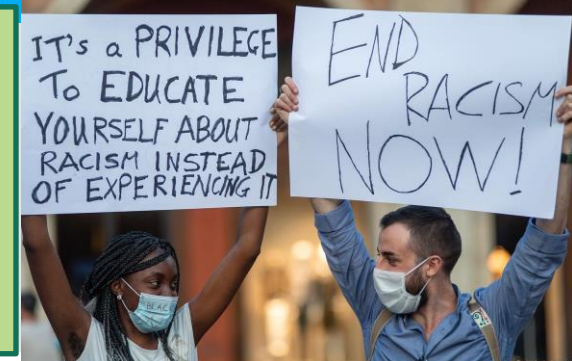 IT's a PRIVILEGE
To EDUCATE
YOURSELF ABOUT
RACISM INSTEAD
OF EXPERIENCING IT
END
RACISM
NOW!
BLACK